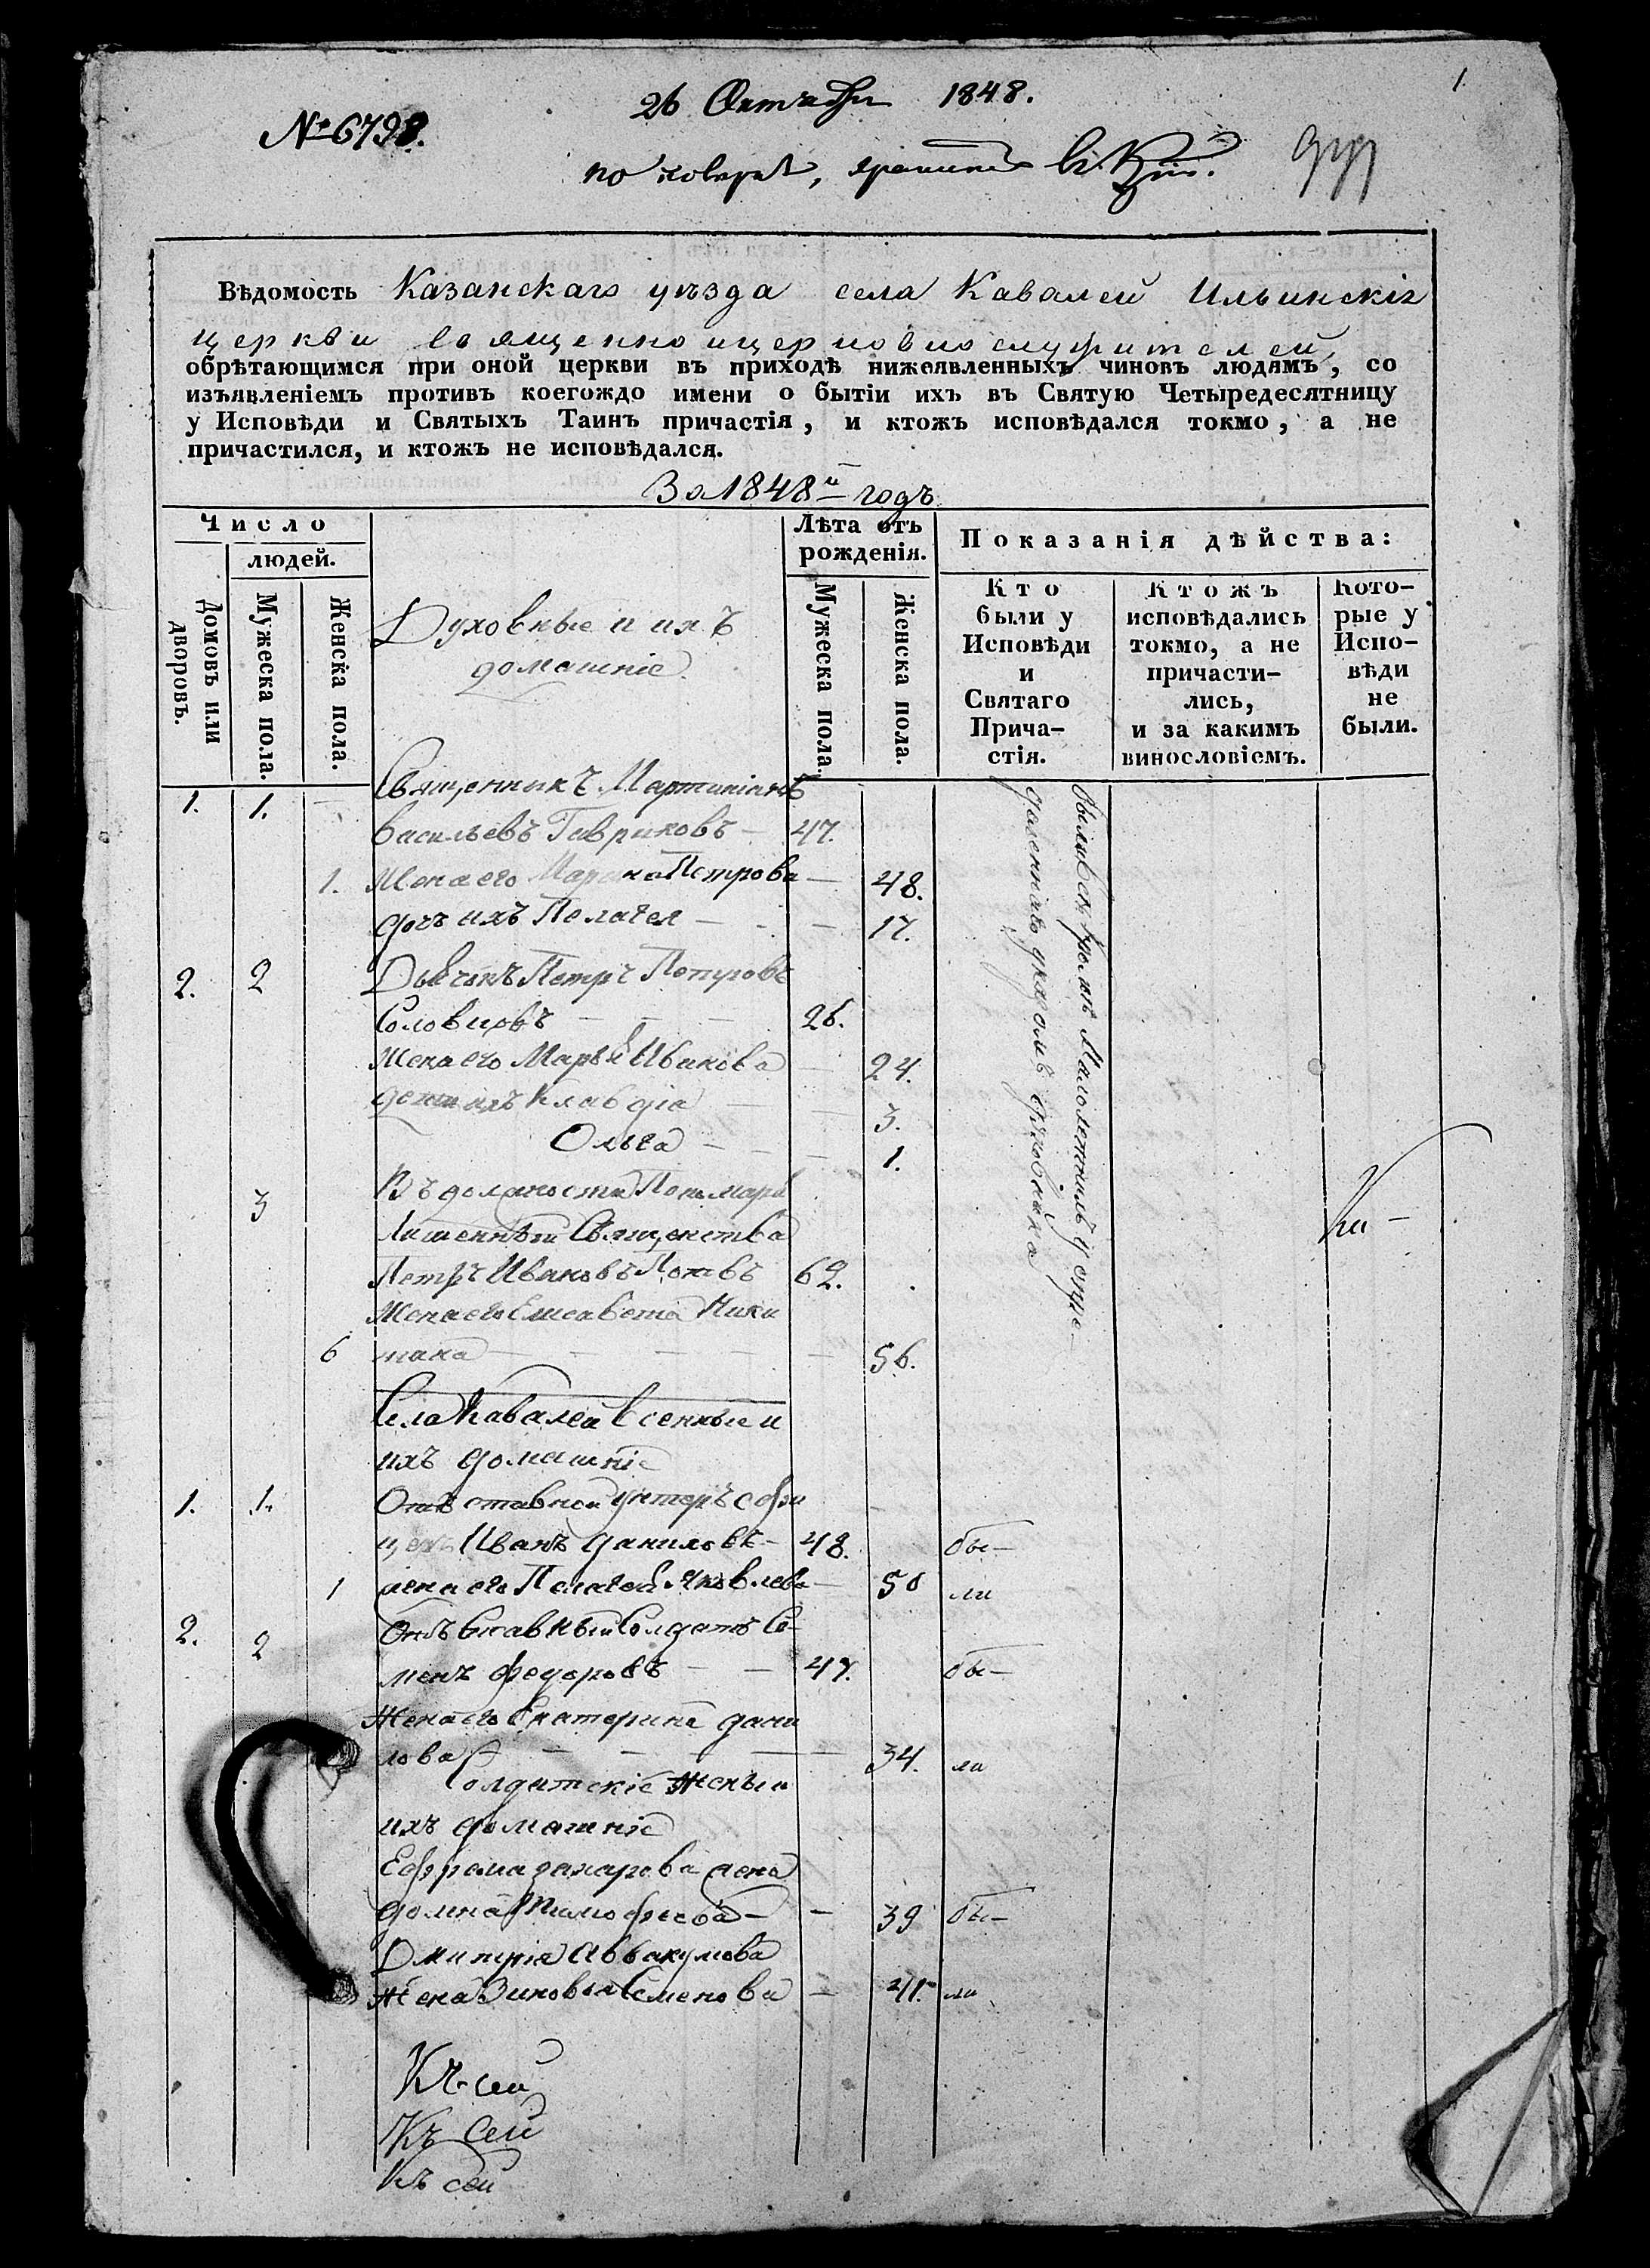 1
26 Октября 1848.
№ 6798.
по поверке, хранить
Вѣдомость Казанскаго уѣзда села Кавалей Ильинскія
церкви священно и церковно служителей,
обрѣтающимся при оной церкви въ приходѣ нижеявленныхъ чиновъ людямъ, со
изъявленіемъ противъ коегождо имени о бытіи ихъ въ Святую Четыредесятницу
у Исповѣди и Святыхъ Таинъ причастія, и ктожъ исповѣдался токмо, а не
причастился, и ктожъ не исповѣдался.
За 1848й годъ
Число
людей.
Домовъ или дворовъ.
Мужеска пола.
Женска пола.
Духовные и ихъ
домашніе.
Лѣта отъ
рожденія.
Мужеска пола.
Женска пола.
Показанія дѣйства:
Кто
были у
Исповѣди
и
Святаго
Прича-
стія.
Ктожъ
исповѣдались
токмо, а не
причасти-
лись,
и за какимъ
винословіемъ.
Кото-
рые у
Испо-
вѣди
не
были.
1. 1. Священникъ Мартиніанъ
Васильевъ Гавриковъ 47.
1. Жена его Марина Петрова 48.
дочь ихъ Пелагея 17.
2. 2 Дьячокъ Петръ Петровъ
Соловцовъ 26.
Жена его Марья Иванова 24.
дети ихъ Клавдія 3.
Ольга 1.
3 Въ должности Пономаря
Лишенный Священства
Петръ Ивановъ Поповъ 62.
Жена его Елисавета Ники
6 тина 56.
были все кроме малолетнихъ и отре-
даннаго указомъ
Села Кавалей Военные и
ихъ домашніе
1. 1. Отъ ставной Унтеръ офи
церъ Иванъ Даниловъ 48. бы-
1 жена его Пелагея Яковлева 50 ли
2. 2 Отъ ставный Солдатъ Се-
менъ Федоровъ 47. бы-
Жена его Екатерина Дани
лова 34. ли
Солдатскіе Жены и
ихъ домашніе
Ефрема Захарова жена
Домна Тимофеева 39 бы-
Дмитрія Аввакумова
Жена Зиновья Семенова 41. ли
Къ сей
Къ сей
Къ сей